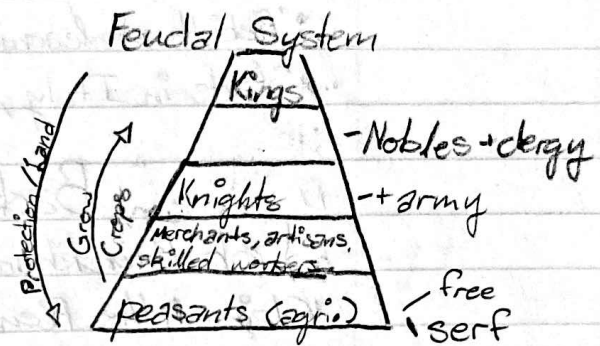 Feudal System
Kings
- Nobles + clergy
Knights
- + army
Merchants, artisans,
skilled workers
peasants (agri.)
free
serf
Protection/Land
Grow
Crops